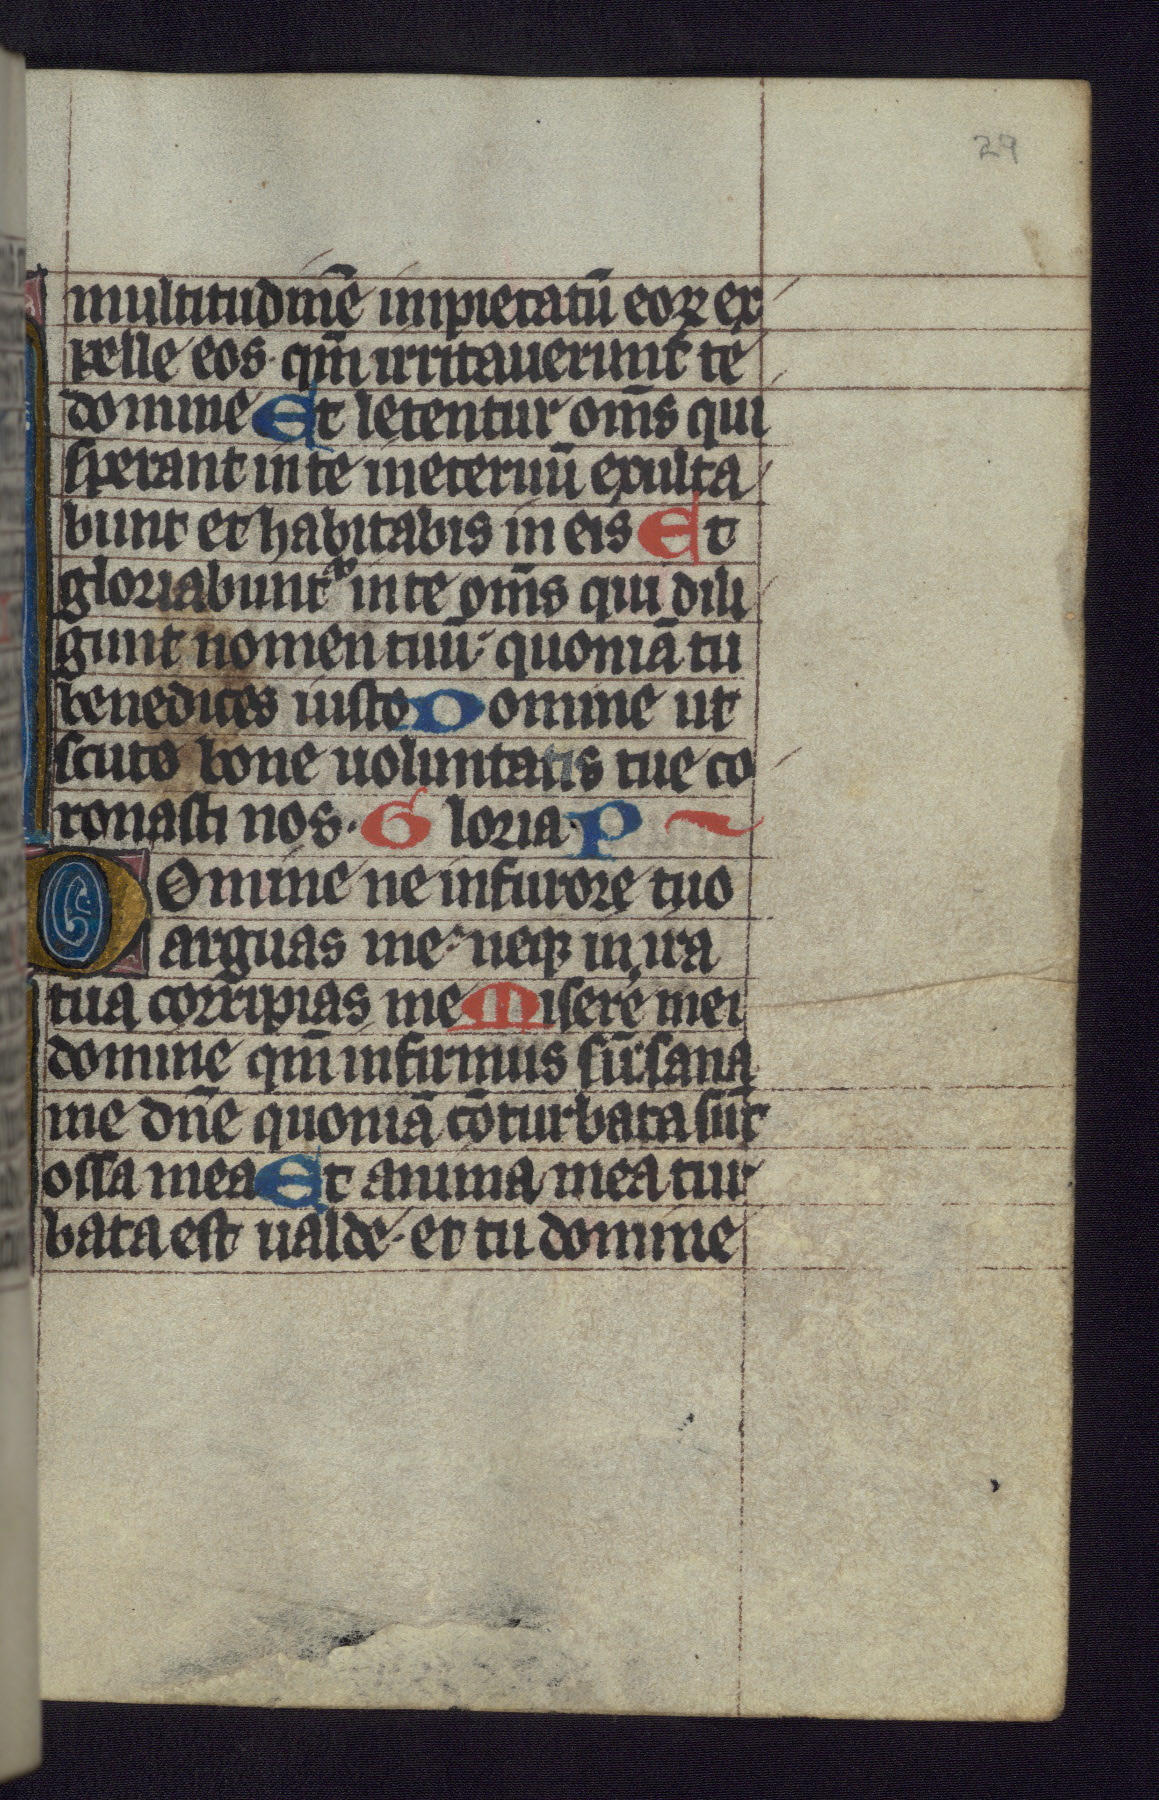 29
multitudinē impietatū eoꝝ ex
pelle eos· qm̄ irritauerunt te
domine Et letentur om̄s qui
sperant in te in eternū exulta
bunt et habitabis in eis Et
gloriabunt᷑ in te om̄s qui dili
gunt nomen tuū· quoniā tu
benedices iusto Domine ut
scuto bone uoluntatis tue co
ronasti nos· Gloria· P
Domine ne in furore tuo
arguas me· neqꝫ in ira
tua corripias me Miserē mei
domine qm̄ infirmus sū· sana
me dn̄e quoniā cōturbata sūt
ossa mea Et anima mea tur
bata est ualde· et tu domine